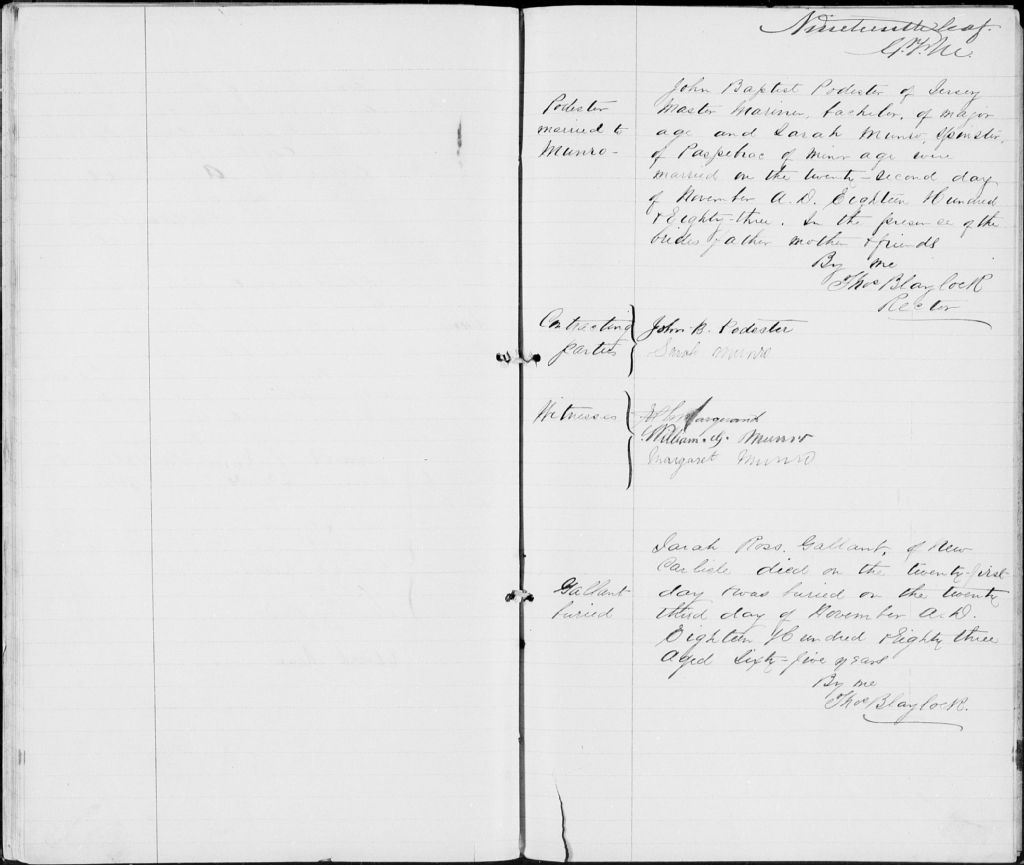 Nineteenth leaf.
Podester
married to
Munro-
John Baptist Podester of Jersey
Master Mariner, bachelor, of major
age and Sarah Munro, spinster,
of Paspebiac of minor age were
married on the twenty-second day
of November A.D. Eighteen Hundred
& Eighty-three. In the presence of the
brides father mother & friends
By me
Thos Blaylock
Rector
Contracting
parties
John B. Podester
Sarah Munro
Witnesses
William Munro
Margaret Munro
Gallant
buried
Sarah Ross Gallant, of New
Carlisle died on the twenty-first
day & was buried on the twenty
third day of November A.D.
Eighteen Hundred & Eighty three
Aged Sixty-five years
By me
Thos Blaylock.